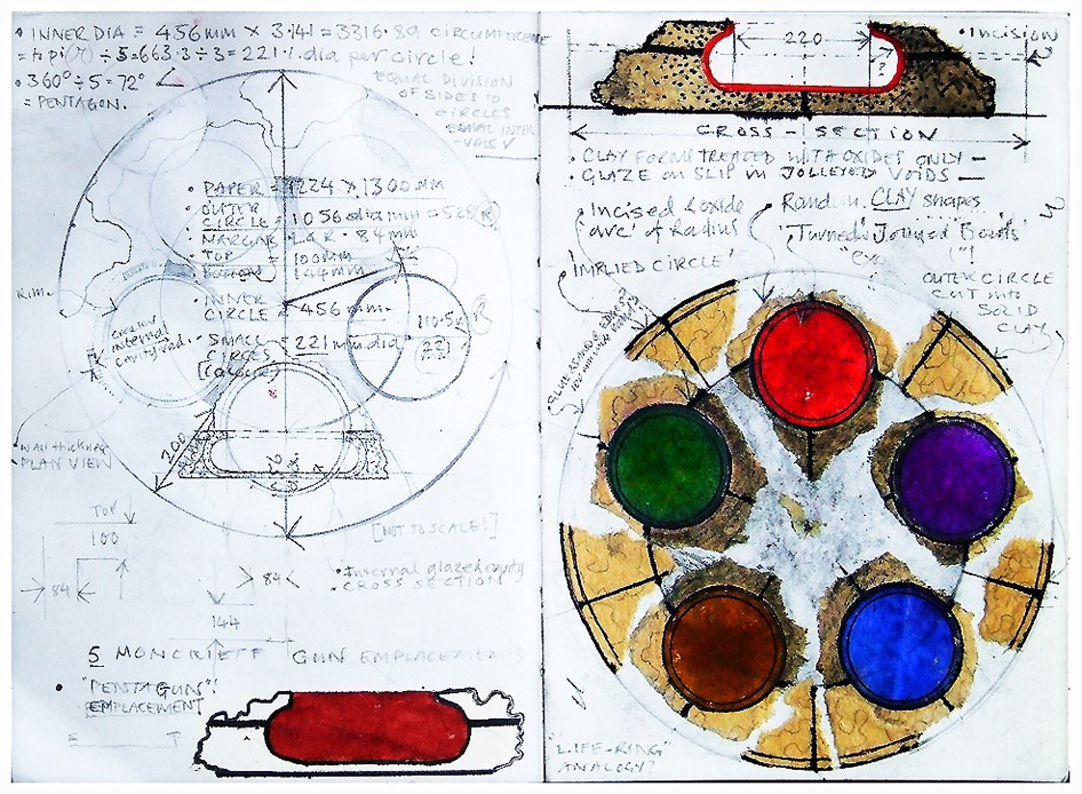 • INNER DIA = 456mm × 3.141 = 3316.89 CIRCUMFERENCE
÷ 5 = 663.3 ÷ 3 = 221.1 dia per circle!
• 360° ÷ 5 = 72°
= PENTAGON.
EQUAL DIVISION
OF SIDES to
CIRCLES
EQUAL INTER
-VALS
• PAPER = 1224 × 1300 mm
• OUTER
CIRCLE = 1056 dia mm = 528 R
• MARGINS L & R • 84 mm
• TOP = 100mm
• BOTTOM = 144mm
• INNER
CIRCLE = 456 mm.
• SMALL = 221 mm dia
CIRCLES
[COLOUR]
R.M.
internal
cavity rad.
110.5 R
221
200
• Wall thickness
PLAN VIEW
[NOT TO SCALE!]
TOP
100
84
84
144
• Internal glazed cavity
CROSS SECTION
5 MONCRIEFF GUN EMPLACEMENTS
• "PENTAGUN"!
EMPLACEMENT
E T
220
?
• Incision
CROSS - SECTION
• CLAY FORMS TREATED WITH OXIDES ONLY —
• GLAZE on SLIP in JOLLEYED VOIDS —
• Incised & oxide
'arc' of Radius
'IMPLIED CIRCLE'
• Random CLAY shapes
'Turned & Jolleyed Bowls'
OUTER CIRCLE
CUT into
SOLID
CLAY
"LIFE-RING"
ANALOGY?